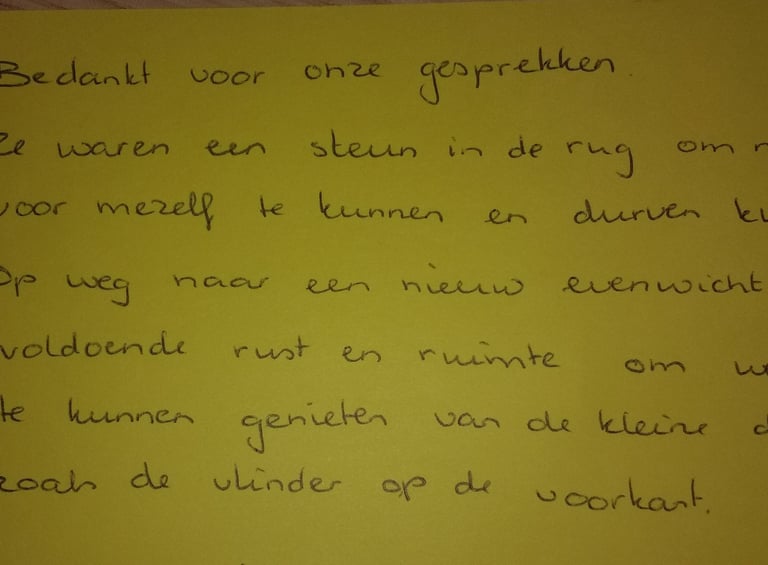 Bedankt voor onze gesprekken.
Ze waren een steun in de rug om
voor mezelf te kunnen en durven
Op weg naar een nieuw evenwicht
voldoende rust en ruimte om
te kunnen genieten van de kleine
zoals de vlinder op de voorkant.